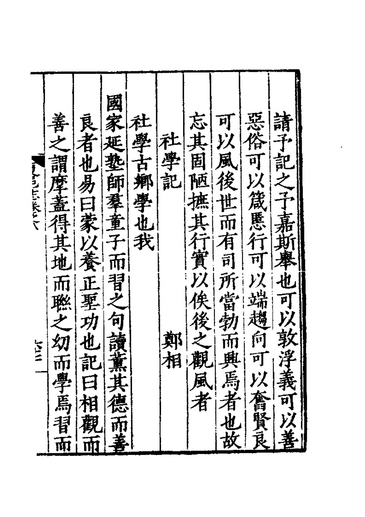 請予記之予嘉斯舉也可以敦浮義可以善
惡俗可以箴慝行可以端趨向可以奮賢良
可以風後世而有司所當勃而興焉者也故
忘其固陋摭其行實以俟後之觀風者
社學記 鄭相
社學古鄉學也我
國家延塾師羣童子而習之句讀薰其德而善
良者也易曰蒙以養正聖功也記曰相觀而
善之謂摩蓋得其地而聯之幼而學焉習而